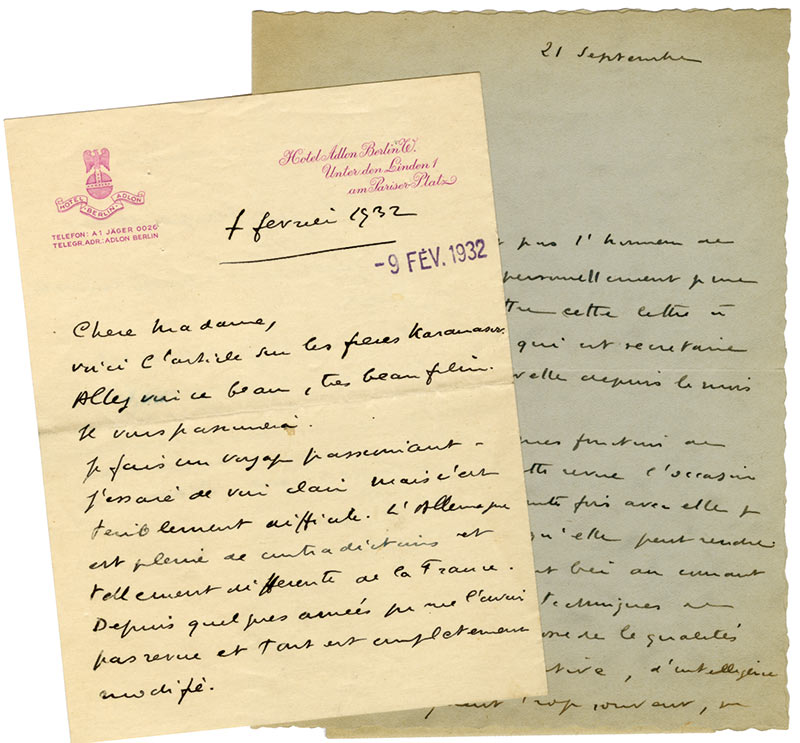 HOTEL ADLON
BERLIN
TELEFON: A 1 JÄGER 0026
TELEGR. ADR.: ADLON BERLIN
Hotel Adlon Berlin W.
Unter den Linden 1
am Pariser Platz
fevrier 1932
-9 FÉV. 1932
Chere Madame,
voici l'article sur les freres Karamasov.
Allez voir ce beau, tres beau film.
Je fais un voyage passionant -
j'essaie de voir clair mais c'est
terriblement difficile. L'Allemagne
est pleine de contradictions et
tellement differente de la France.
Depuis quelques années je ne l'avais
pas revue et tout est completement
modifié.
21 Septembre
pas l'honneur de
personnellement
cette lettre à
qui est secretaire
depuis le mois
revue l'occasion
fois avec elle
qu'elle peut rendre
au courant
techniques
de les qualités
d'intelligence
trop souvent,